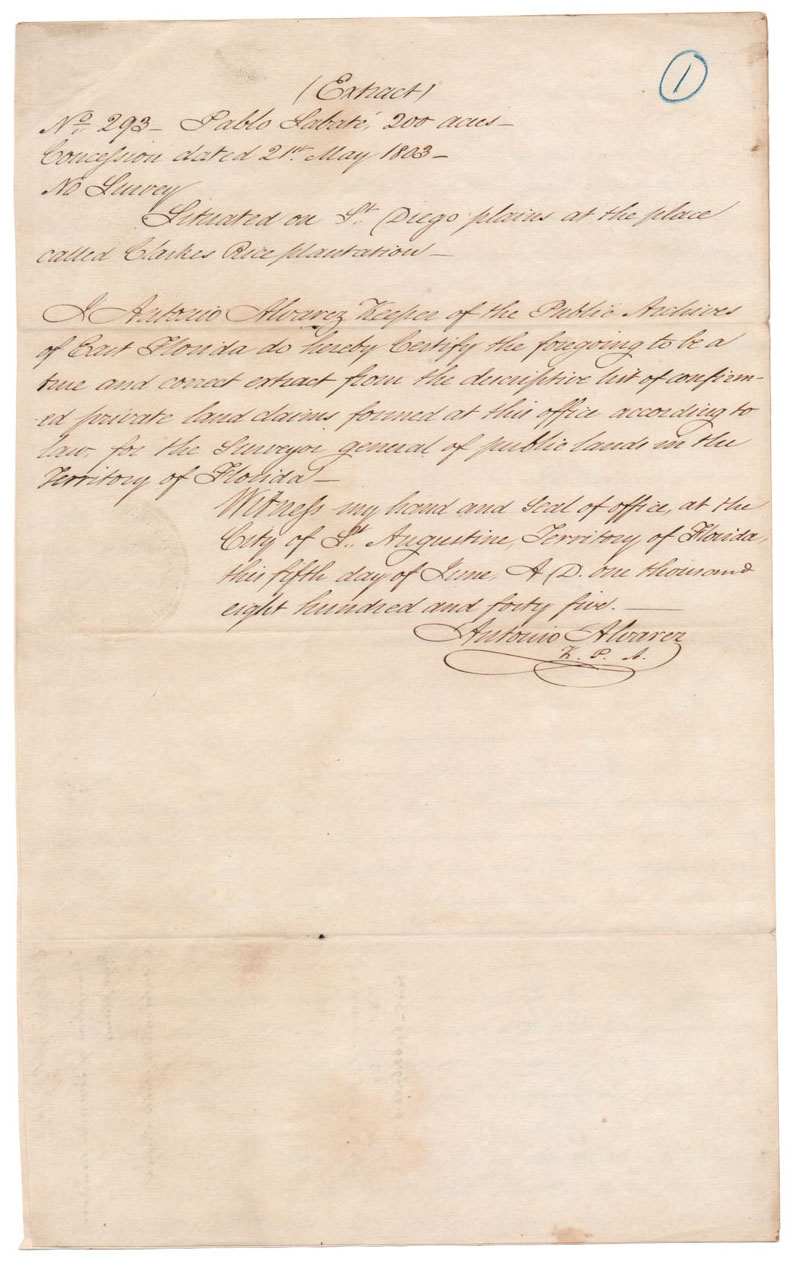 (Extract)
1
No. 293 – Pablo Sabaté, 200 acres –
Concession dated 21st May 1803 –
No Survey
Situated on St. Diego plains at the place
called Clarkes Rice plantation –
I Antonio Alvarez Keeper of the Public Archives
of East Florida do hereby Certify the foregoing to be a
true and correct extract from the descriptive list of confirm-
-ed private land claims formed at this office according to
law, for the Surveyor general of public lands in the
Territory of Florida –
Witness my hand and Seal of office, at the
City of St. Augustine, Territory of Florida,
this fifth day of June, A. D. one thousand
eight hundred and forty five. –
Antonio Alvarez
K. P. A.